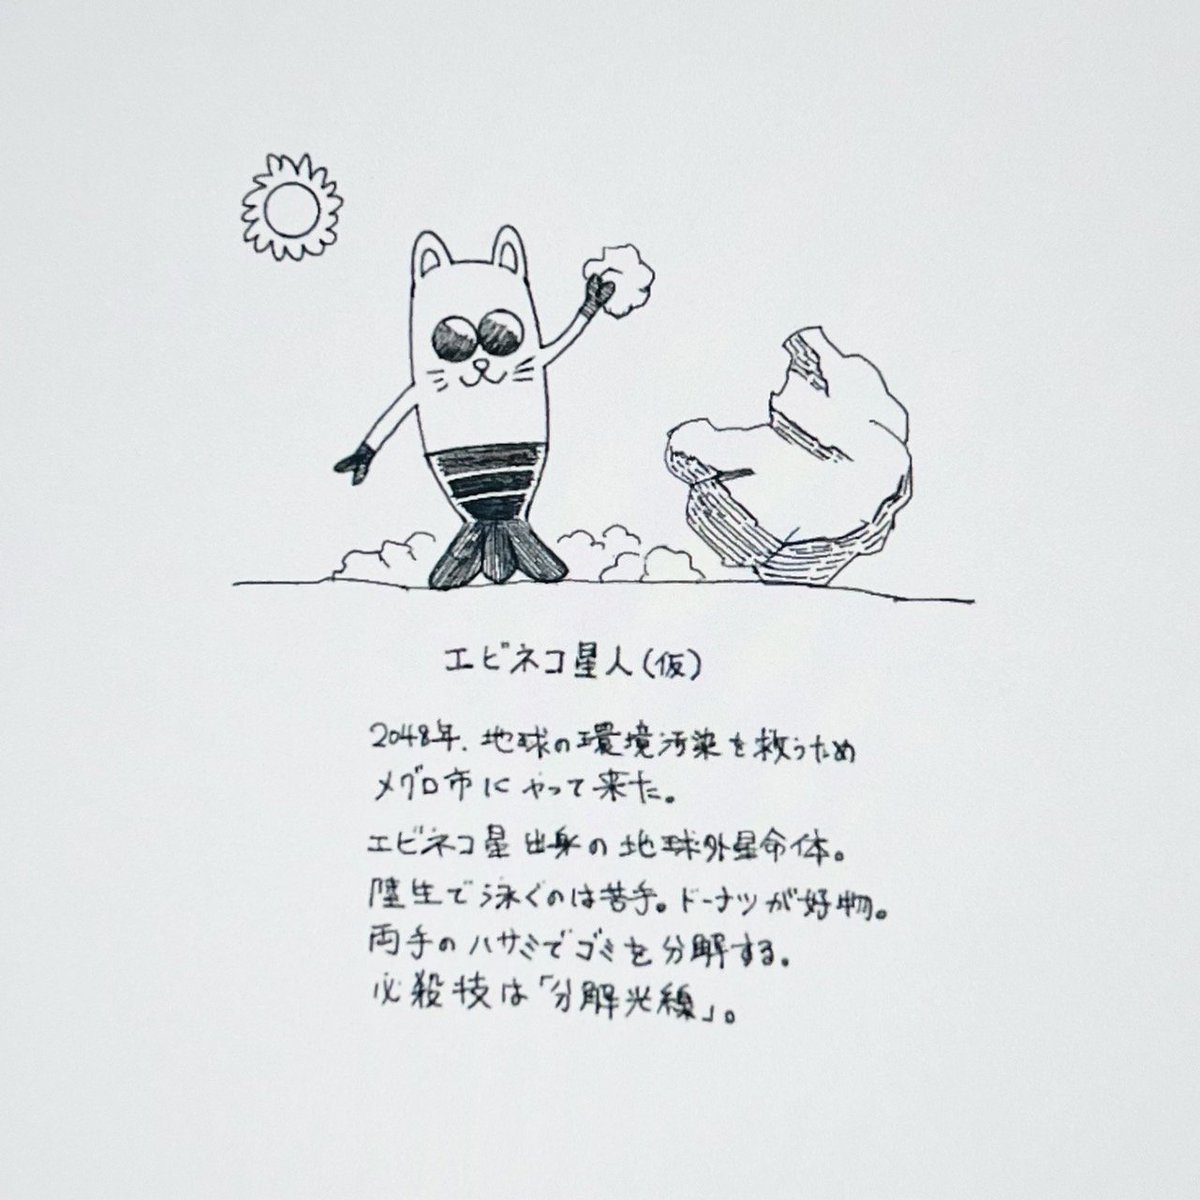 エビネコ星人(仮)
2048年、地球の環境汚染を救うため
メグロ市にやって来た。
エビネコ星出身の地球外星命体。
陸生で泳ぐのは苦手。ドーナツが好物。
両手のハサミでゴミを分解する。
必殺技は「分解光線」。